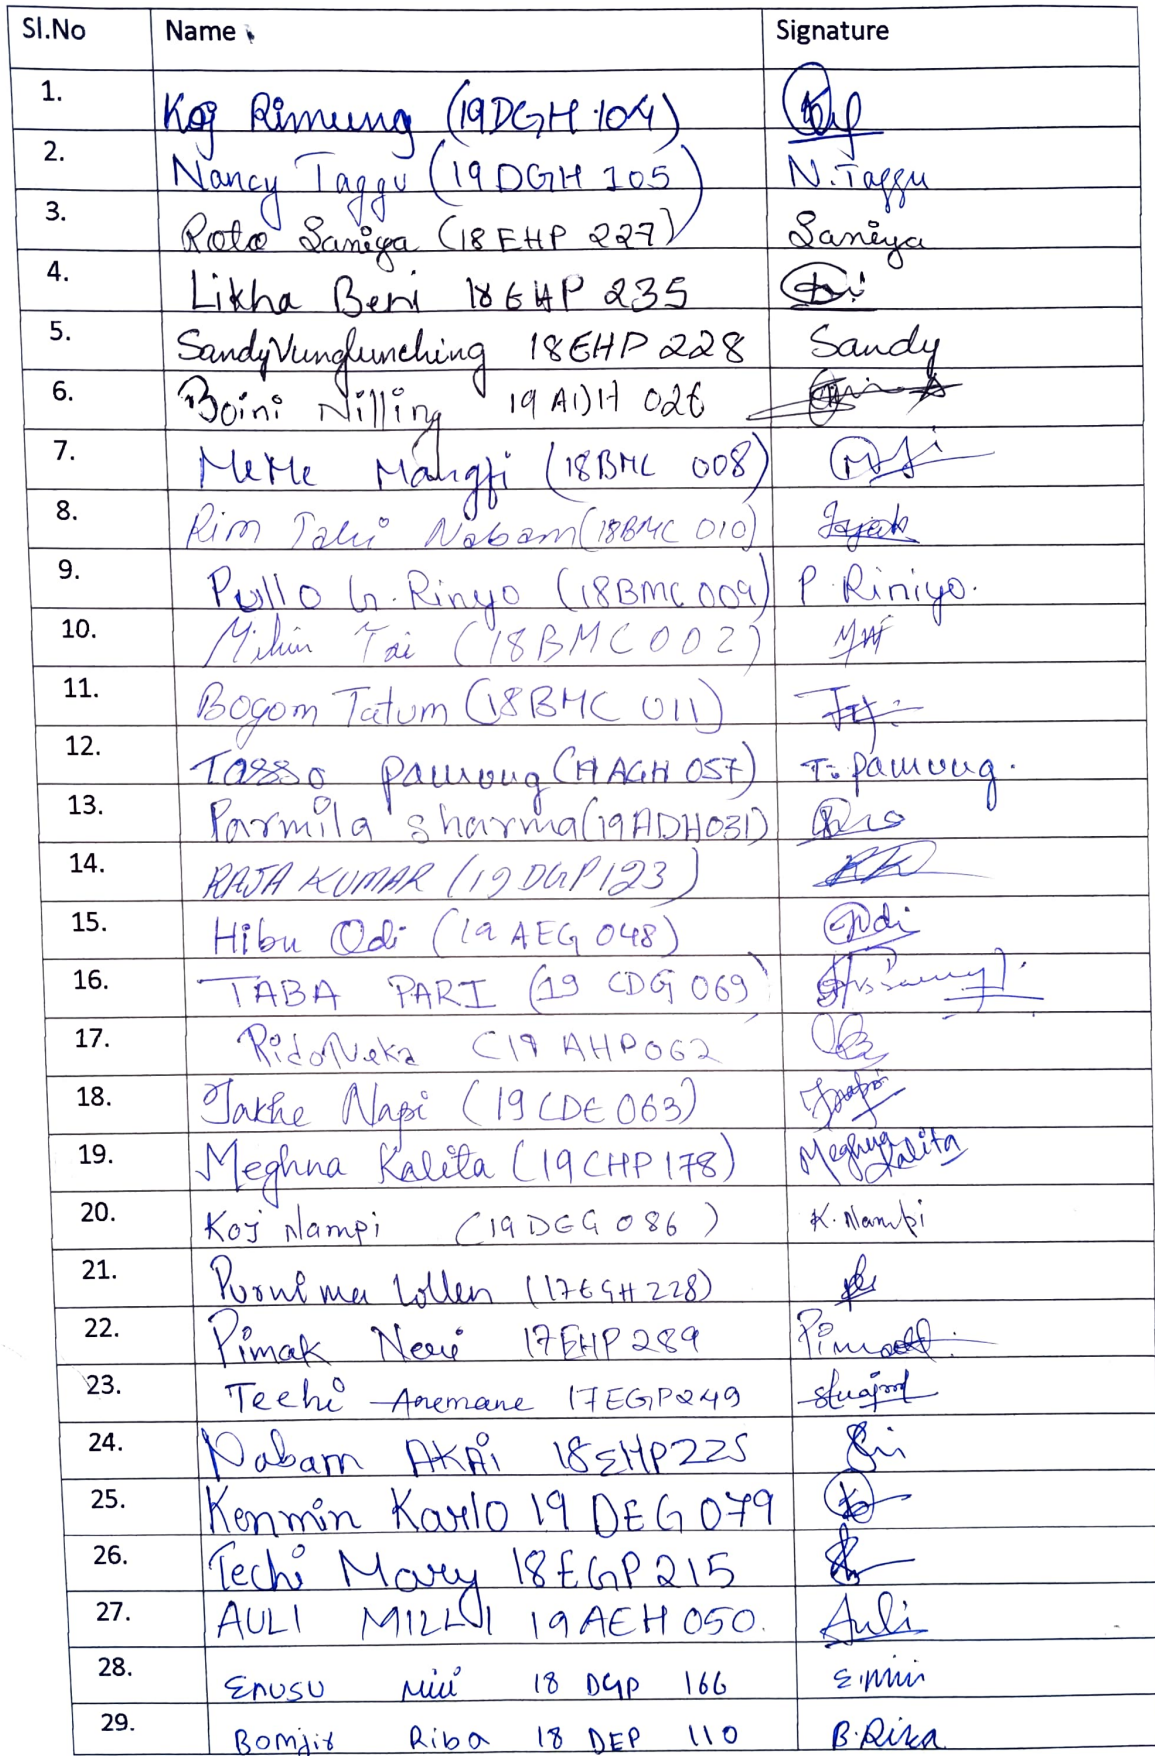 Sl.No Name Signature
1. Koj Rimung (19DGH 104)
2. Nancy Taggu (19DGH 105) N.Taggu
3. Roto Saniya (18EHP 227) Saniya
4. Likha Beni 18EHP 235
5. SandyVunglunching 18EHP 228 Sandy
6. Boini Nilling 19ADH 026
7. MeMe Mangfi (18BMC 008)
8. Rim Tahi Nabam (18BMC 010)
9. Pullo G. Rinyo (18BMC 009) P. Riniyo.
10. Mihin Tai (18BMC002)
11. Bogom Tatum (18BMC 011)
12. Tasso Pamung AGH 057) T. Pamung.
13. Parmila Sharma (19ADH031)
14. RAJA KUMAR (19DGP123)
15. Hibu Odi (19 AEG 048) Odi
16. TABA PARI (19 CDG 069)
17. Rido Neka (19 AHP062
18. Takhe Napi (19CDE063)
19. Meghna Kalita (19CHP178) Meghna Kalita
20. Koj Nampi (19DEG 086) K. Nampi
21. Purnima Lollen (17EGH228)
22. Pimak Neri 17EHP289
23. Techi Anemane 17EGP249
24. Nabam AKAi 18EHP225
25. Kenmin Karlo 19 DEG 079
26. Techi Mary 18EGP215
27. AULI MILLI 19AEH050. Auli
28. ENUSU Mili 18 DGP 166 E.Mili
29. Bomjir Riba 18 DEP 110 B.Riba